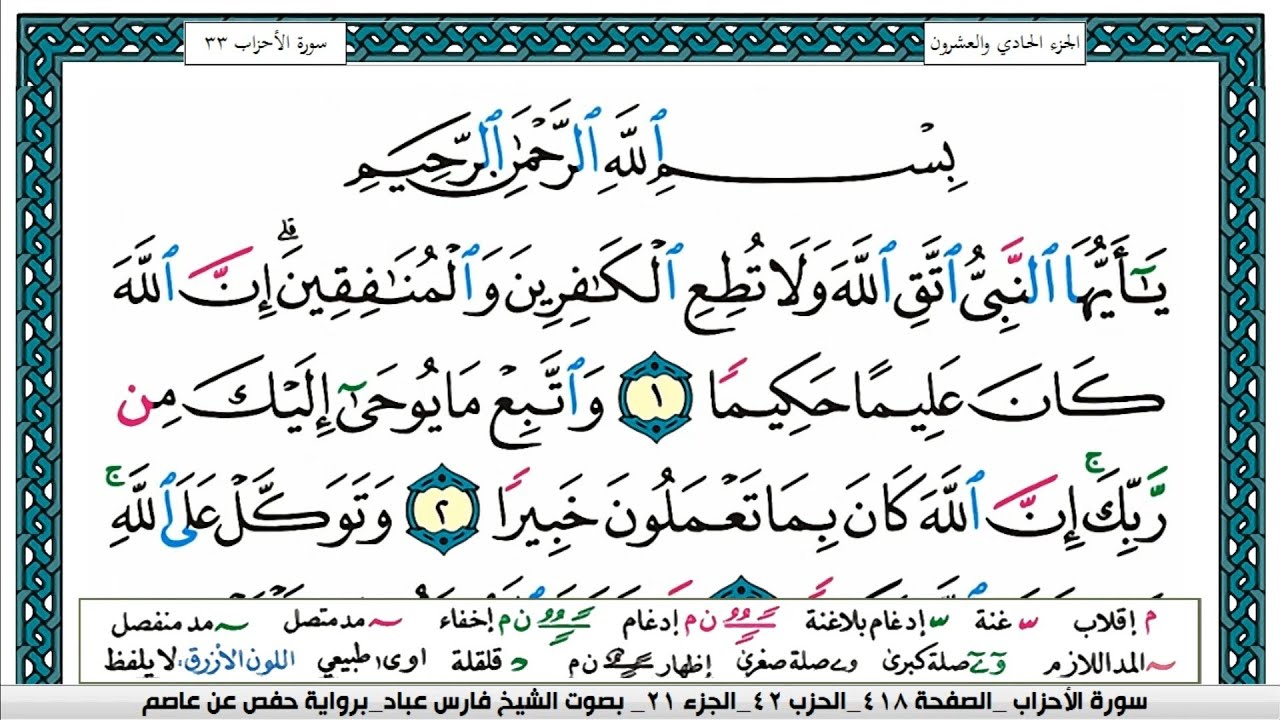 الجزء الحادي والعشرون
سورة الأحزاب ٣٣
بِسْمِ ٱللَّهِ ٱلرَّحْمَٰنِ ٱلرَّحِيمِ
يَٰٓأَيُّهَا ٱلنَّبِىُّ ٱتَّقِ ٱللَّهَ وَلَا تُطِعِ ٱلْكَٰفِرِينَ وَٱلْمُنَٰفِقِينَ ۗ إِنَّ ٱللَّهَ
كَانَ عَلِيمًا حَكِيمًا ١ وَٱتَّبِعْ مَا يُوحَىٰٓ إِلَيْكَ مِن
رَّبِّكَ ۚ إِنَّ ٱللَّهَ كَانَ بِمَا تَعْمَلُونَ خَبِيرًا ٢ وَتَوَكَّلْ عَلَى ٱللَّهِ ۚ
م إقلاب س غنة س إدغام بلا غنة ن م إدغام ن م إخفاء مد متصل مد منفصل
المد اللازم صلة كبرى صلة صغرى إظهار ن م قلقلة د اوى ا طبيعي اللون الأزرق: لا يلفظ
سورة الأحزاب _الصفحة ٤١٨_الحزب ٤٢_الجزء ٢١_ بصوت الشيخ فارس عباد_برواية حفص عن عاصم